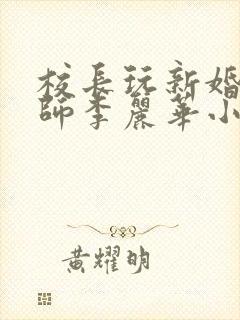 校長玩新婚
師李麗華小
黃耀明